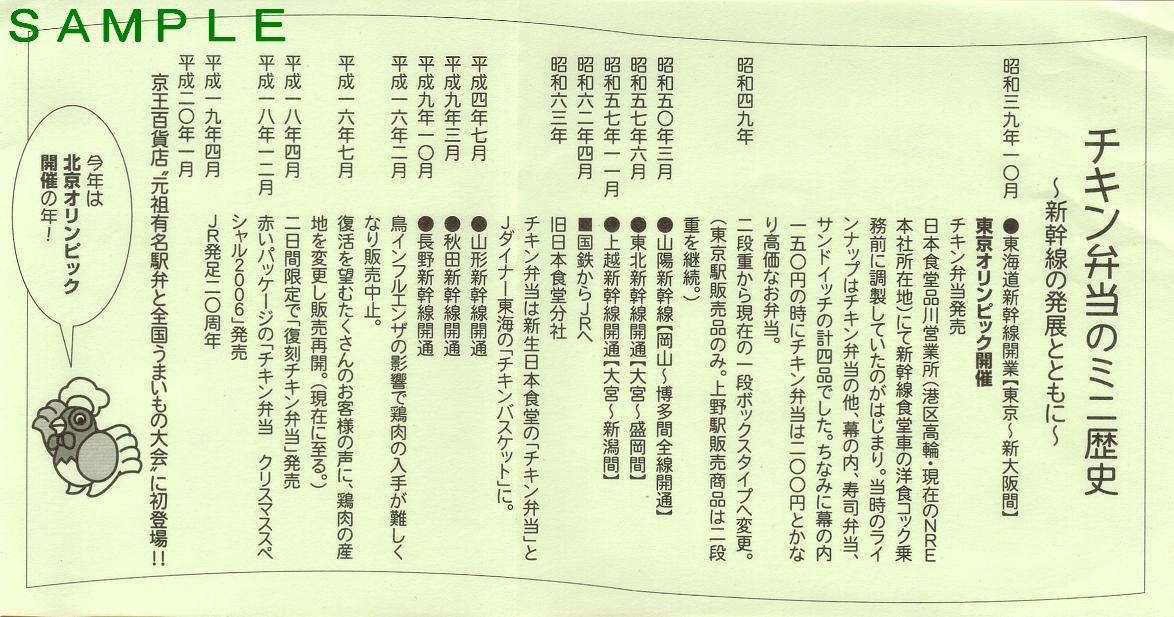 SAMPLE
チキン弁当のミニ歴史
～新幹線の発展とともに～
昭和三九年一〇月 ●東海道新幹線開業【東京～新大阪間】
東京オリンピック開催
チキン弁当発売
日本食堂品川営業所（港区高輪・現在のＮＲＥ
本社所在地）にて新幹線食堂車の洋食コック乗
務前に調製していたのがはじまり。当時のライ
ンナップはチキン弁当の他、幕の内、寿司弁当、
サンドイッチの計四品でした。ちなみに幕の内
一五〇円の時にチキン弁当は二〇〇円とかな
り高価なお弁当。
昭和四九年 二段重から現在の一段ボックスタイプへ変更。
（東京駅販売品のみ。上野駅販売商品は二段
重を継続。）
昭和五〇年三月 ●山陽新幹線【岡山～博多間全線開通】
昭和五七年六月 ●東北新幹線開通【大宮～盛岡間】
昭和五七年一一月 ●上越新幹線開通【大宮～新潟間】
昭和六二年四月 ■国鉄からＪＲへ
昭和六三年 旧日本食堂分社
チキン弁当は新生日本食堂の「チキン弁当」と
Ｊダイナー東海の「チキンバスケット」に。
平成四年七月 ●山形新幹線開通
平成九年三月 ●秋田新幹線開通
平成九年一〇月 ●長野新幹線開通
平成一六年二月 鳥インフルエンザの影響で鶏肉の入手が難しく
なり販売中止。
平成一六年七月 復活を望むたくさんのお客様の声に、鶏肉の産
地を変更し販売再開。（現在に至る。）
平成一八年四月 二日間限定で「復刻チキン弁当」発売
平成一八年一二月 赤いパッケージの「チキン弁当　クリスマススペ
シャル２００６」発売
平成一九年四月 ＪＲ発足二〇周年
平成二〇年一月
京王百貨店〝元祖有名駅弁と全国うまいもの大会〟に初登場！！
今年は
北京オリンピック
開催の年！